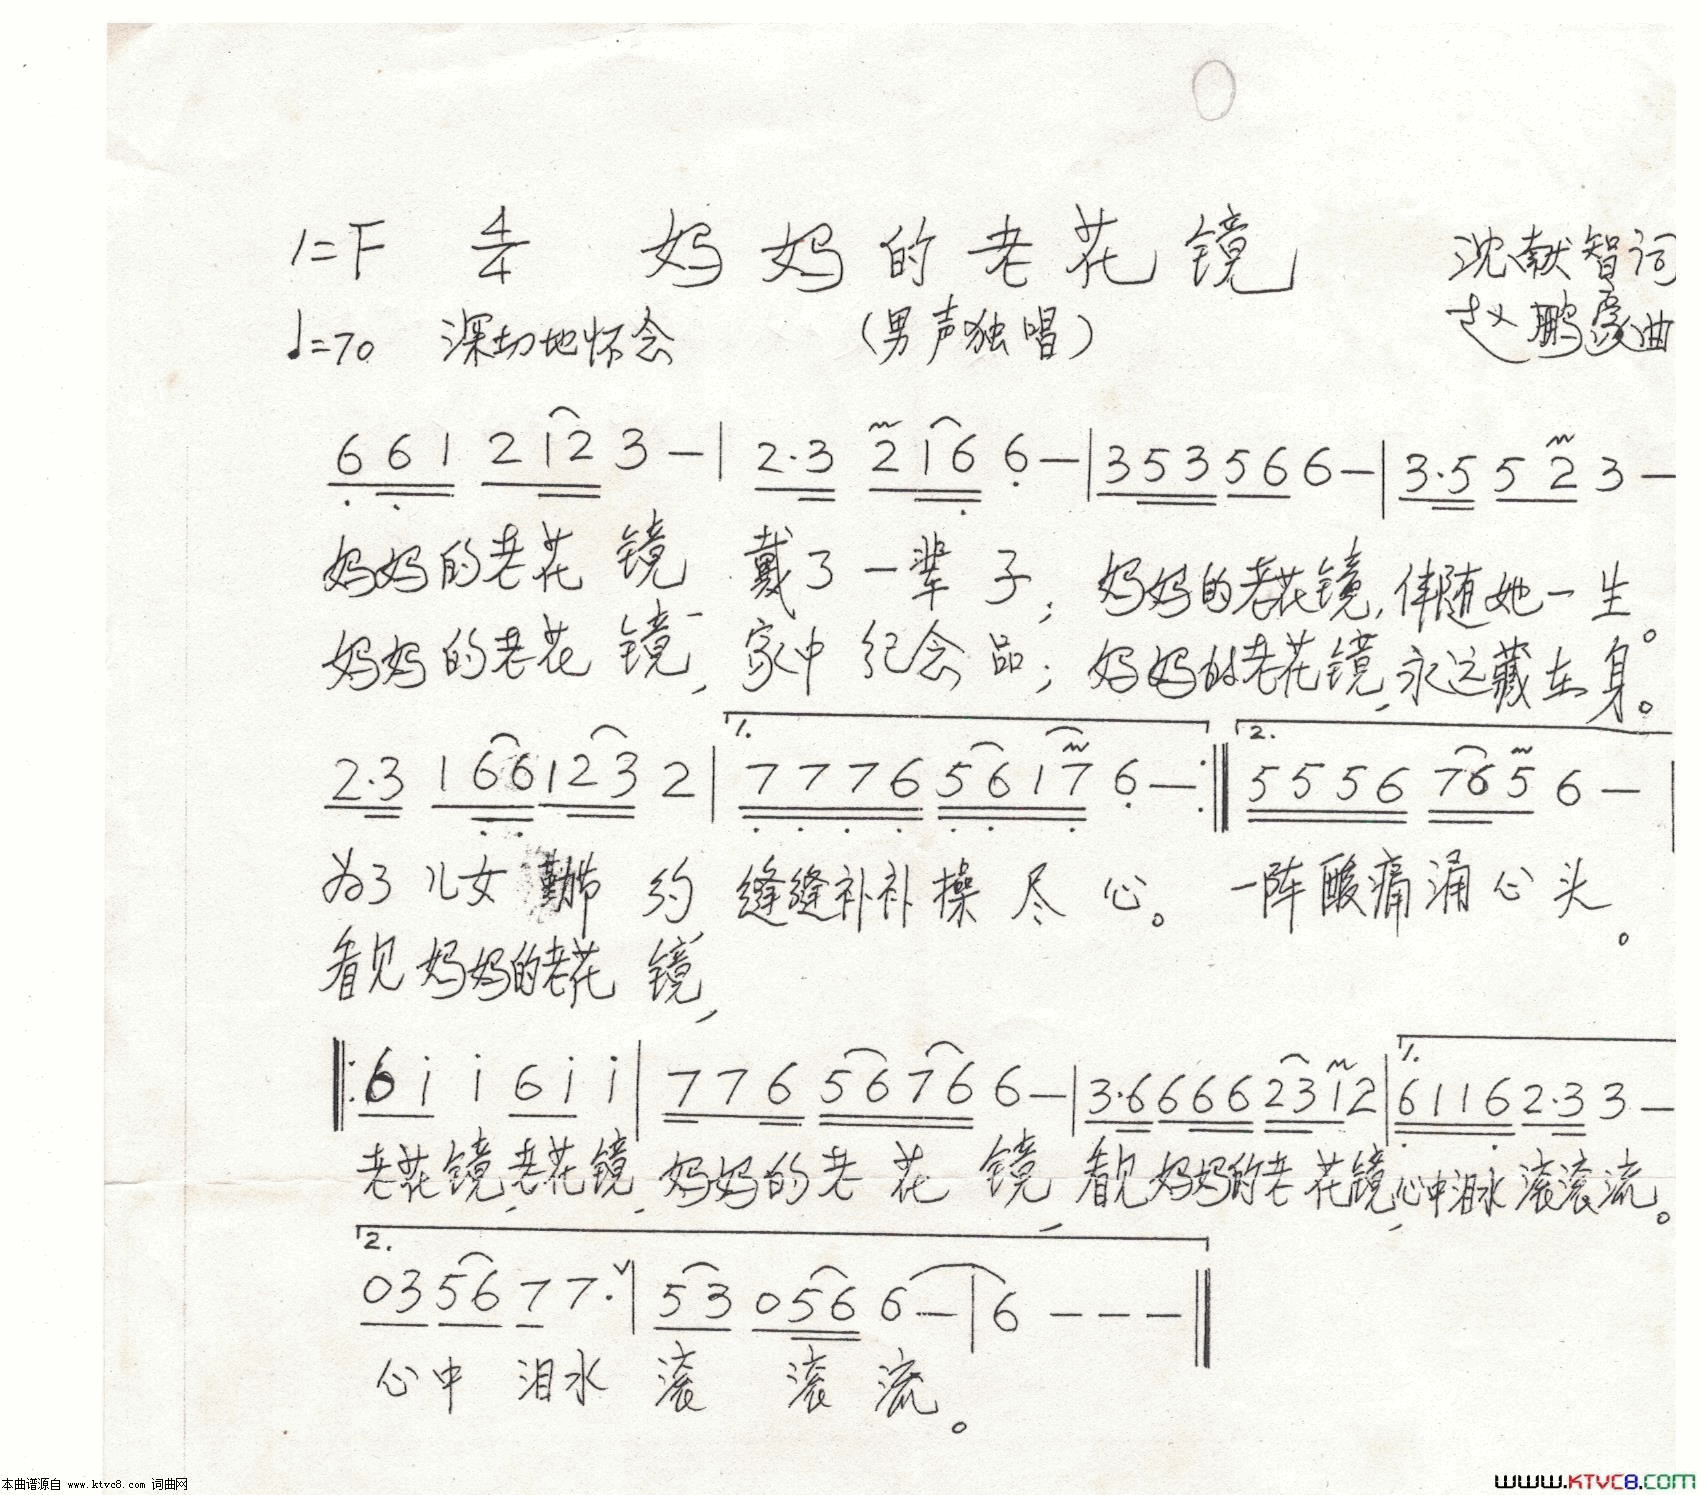 1=F 4/4 妈妈的老花镜 沈献智词
♩=70 深切地怀念 (男声独唱) 赵鹏曲
6 6 1 2 1 2 3 — | 2·3 2 1 6 6 — | 3 5 3 5 6 6 — | 3·5 5 2 3 —
妈妈的老花镜 戴了一辈子; 妈妈的老花镜,伴随她一生。
妈妈的老花镜, 家中纪念品; 妈妈的老花镜,永远藏在身。
1. 2.
2·3 1 6 6 1 2 3 2 | 7 7 7 6 5 6 1 7 6 — :‖ 5 5 5 6 7 6 5 6 — |
为了儿女勤节约, 缝缝补补操尽心。 一阵酸痛涌心头。
看见妈妈的老花镜,
1.
‖: 6 i i 6 i i | 7 7 6 5 6 7 6 6 — | 3·6 6 6 6 2 3 1 2 | 6 1 1 6 2·3 3 —
老花镜,老花镜, 妈妈的老花镜, 看见妈妈的老花镜,心中泪水滚滚流。
2.
0 3 5 6 7 7· ∨ | 5 3 0 5 6 6 — | 6 — — — ‖
心中泪水滚滚流。
本曲谱源自 www.ktvc8.com 词曲网
www.KTVC8.com